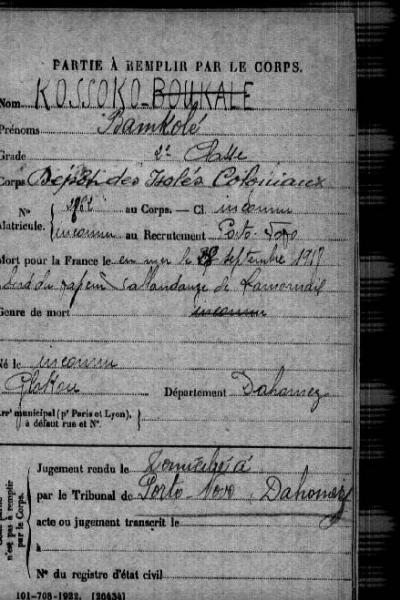 PARTIE À REMPLIR PAR LE CORPS.
Nom KOSSOKO-BOUKALE
Prénoms Bamkolé
Grade 2e Classe
Corps Dépôt des Isolés Coloniaux
N° Matricule. { au Corps. — Cl. inconnu
inconnu au Recrutement Porto-Novo
Mort pour la France le en mer le septembre 1917
bord du vapeur de Lamornaix
Genre de mort inconnu
Né le inconnu
Département Dahomey
Arr' municipal (p' Paris et Lyon), à défaut rue et N°.
Jugement rendu le
par le Tribunal de Porto-Novo, Dahomey
acte ou jugement transcrit le
à
N° du registre d'état civil
n'est pas à remplir par le Corps.
101-708-1922. [20434]